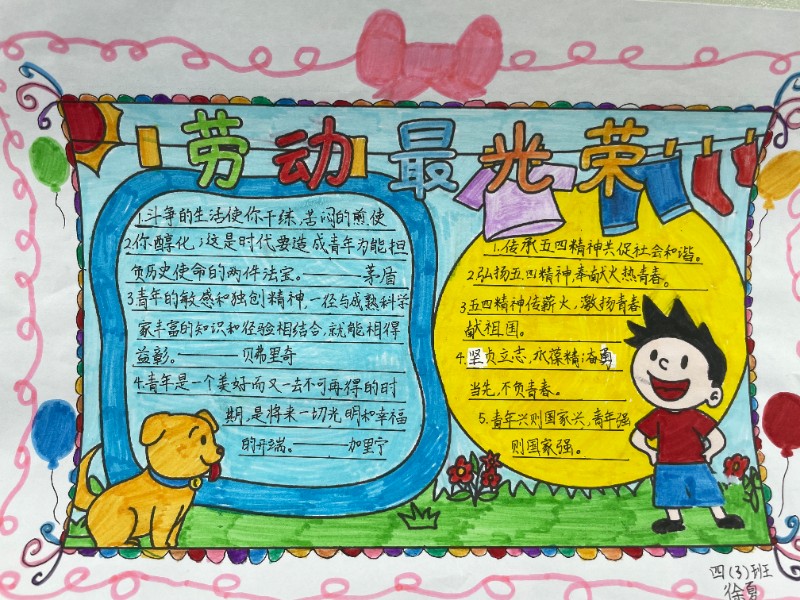 劳动最光荣
1.斗争的生活使你干练,苦闷的煎使
2.你醇化,这是时代要造成青年为能担
负历史使命的两件法宝。———茅盾
3青年的敏感和独创精神,一经与成熟科学
家丰富的知识和经验相结合,就能相得
益彰。———贝弗里奇
4.青年是一个美好而又一去不可再得的时
期,是将来一切光明和幸福
的开端。———加里宁
1.传承五四精神共促社会和谐。
2.弘扬五四精神,奉献火热青春。
3.五四精神传薪火,激扬青春
献祖国。
4.坚贞立志,水藻精奋勇
当先,不负青春。
5.青年兴则国家兴,青年强
则国家强。
四(3)班
徐夏